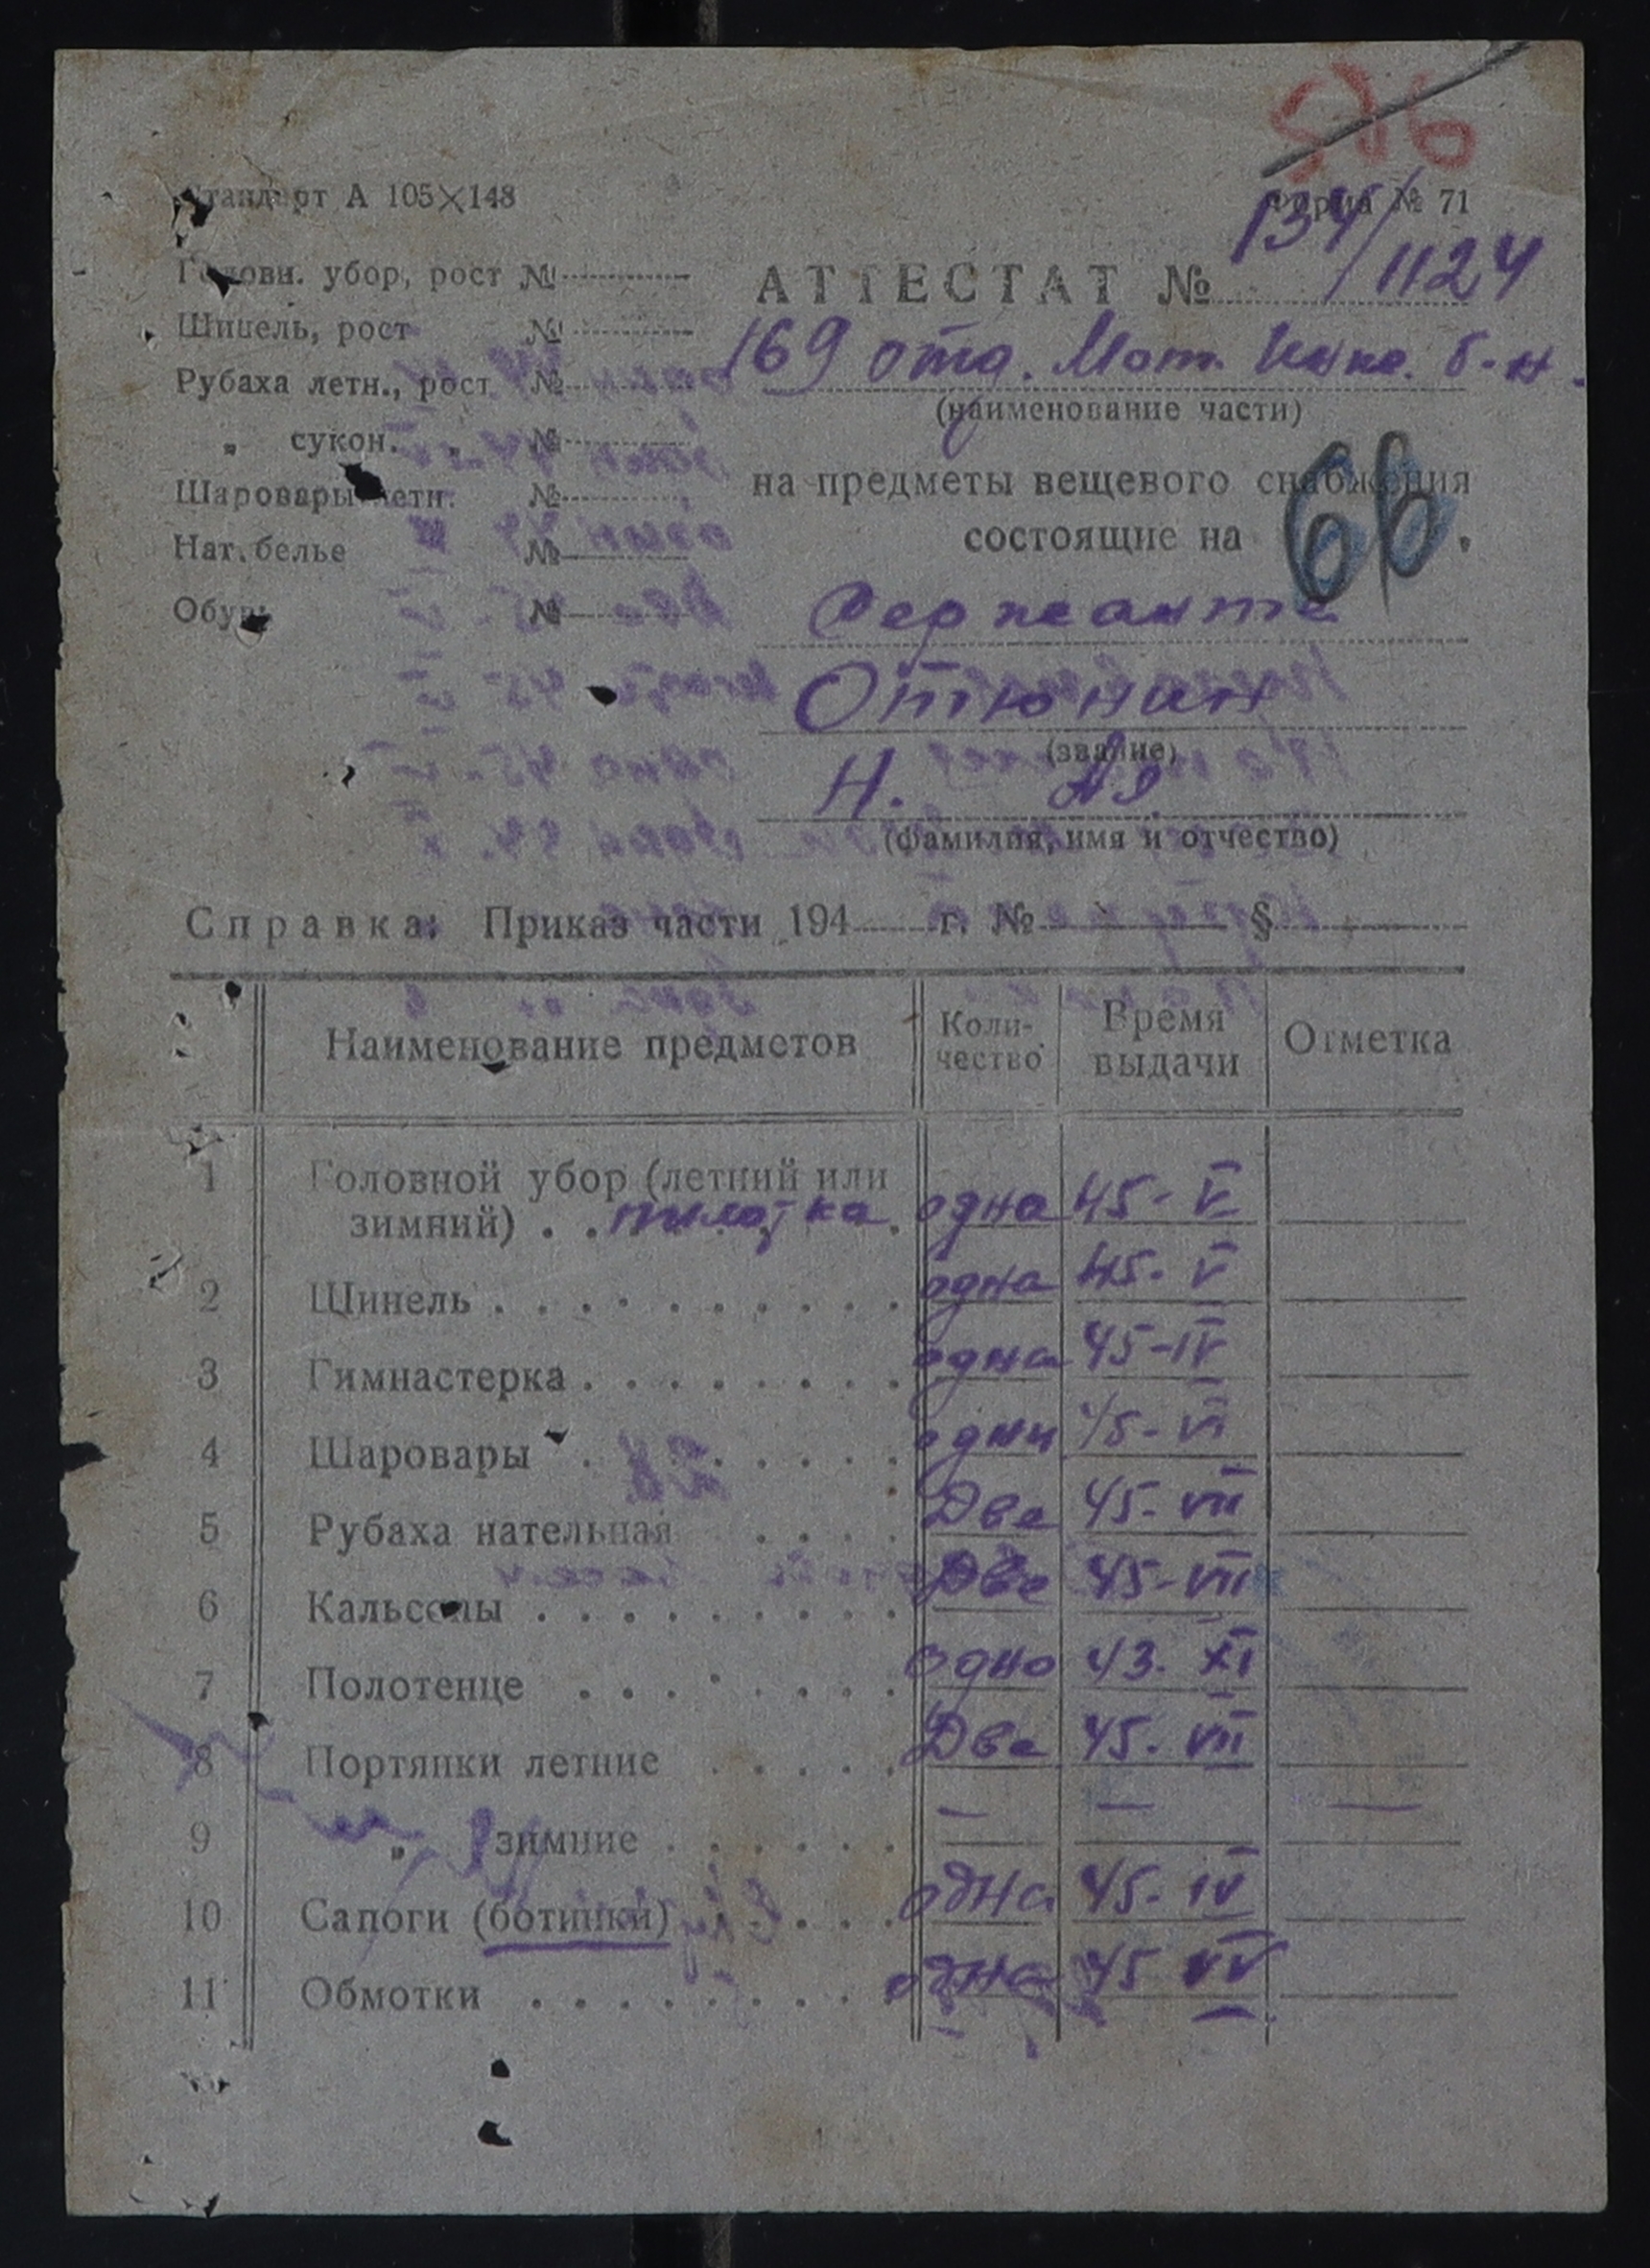 Стандарт А 105×148
Форма № 71
134/1124
Головн. убор, рост №
Шинель, рост №
Рубаха летн., рост №
„ сукон. „ №
Шаровары летн. №
Нат. белье №
Обувь №
АТТЕСТАТ №
169 отд. Мот. Инж. б-н.
(наименование части)
на предметы вещевого снабжения
состоящие на
66
Сержанте
Отюнин
(звание)
Н.
(фамилия, имя и отчество)
Справка: Приказ части 194 г. № §
Наименование предметов Коли-чество Время выдачи Отметка
1 Головной убор (летний или
зимний) . . пилотка . одна 45- V
2 Шинель . . . . . . . . . . . одна 45. V
3 Гимнастерка . . . . . . . . . одна 45-IV
4 Шаровары . . . . . . . . одни 45-VI
5 Рубаха нательная . . . . Две 45. VII
6 Кальсоны . . . . . . . . . . Две 45-VII
7 Полотенце . . . . . . . . одно 43. XI
8 Портянки летние . . . . . Две 45. VII
9 „ зимние . . . . . . — — —
10 Сапоги (ботинки) . . . . одна 45- IV
11 Обмотки . . . . . . . . . одна 45 IV